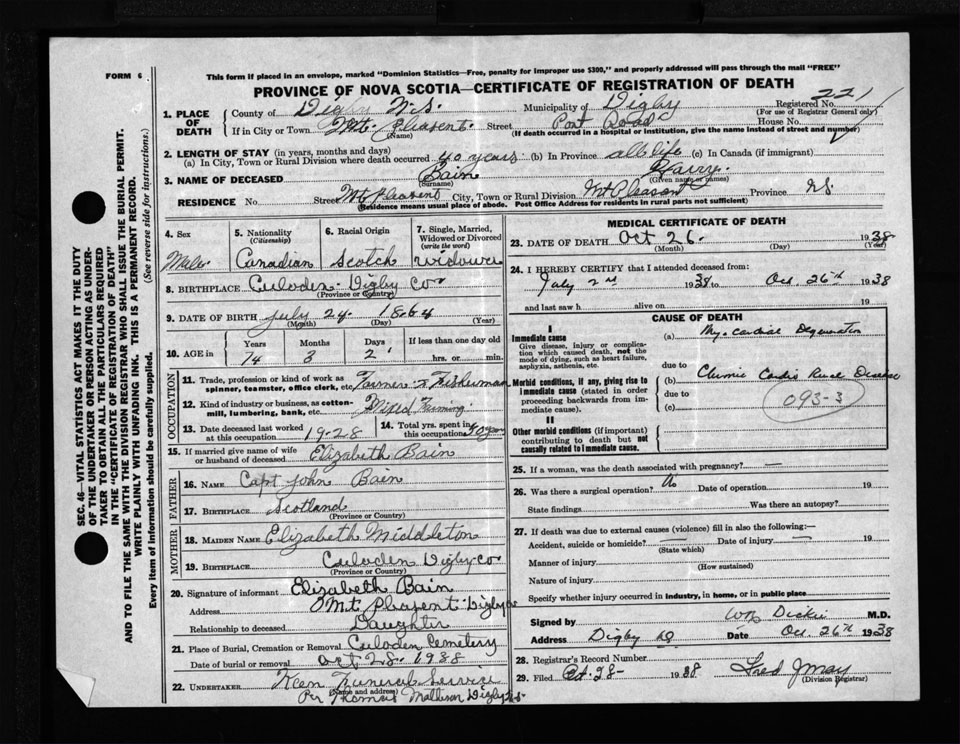 FORM 6
This form if placed in an envelope, marked "Dominion Statistics—Free, penalty for improper use $300," and properly addressed will pass through the mail "FREE"
PROVINCE OF NOVA SCOTIA—CERTIFICATE OF REGISTRATION OF DEATH
1. PLACE OF DEATH County of Digby N.S. Municipality of Digby Registered No. 221
(For use of Registrar General only)
If in City or Town Mt. Pleasent Street Post Road House No.
(Name) (If death occurred in a hospital or institution, give the name instead of street and number)
2. LENGTH OF STAY (in years, months and days)
(a) In City, Town or Rural Division where death occurred 40 years (b) In Province all life (c) In Canada (if immigrant)
3. NAME OF DECEASED Bain Harry
(Surname) (Given name or names)
RESIDENCE No. Street Mt Pleasent City, Town or Rural Division Mt Pleasant Province N.S.
(Residence means usual place of abode. Post Office Address for residents in rural parts not sufficient)
4. Sex 5. Nationality (Citizenship) 6. Racial Origin 7. Single, Married, Widowed or Divorced (write the word)
Male Canadian Scotch widower
8. BIRTHPLACE Culoden Digby Co
(Province or Country)
9. DATE OF BIRTH July 24 1864
(Month) (Day) (Year)
10. AGE in Years Months Days If less than one day
74 3 2 hrs. or min.
OCCUPATION
11. Trade, profession or kind of work as spinner, teamster, office clerk, etc. Farmer & Fisherman
12. Kind of industry or business, as cotton-mill, lumbering, bank, etc. Mixed Farming
13. Date deceased last worked at this occupation 1928 14. Total yrs. spent in this occupation 50 years
15. If married give name of wife or husband of deceased Elizabeth Bain
FATHER
16. NAME Capt John Bain
17. BIRTHPLACE Scotland
(Province or Country)
MOTHER
18. MAIDEN NAME Elizabeth Middleton
19. BIRTHPLACE Culoden Digby Co
(Province or Country)
20. Signature of informant Elizabeth Bain
Address Mt. Pleasent Digby
Relationship to deceased Daughter
21. Place of Burial, Cremation or Removal Culoden Cemetery
Date of burial or removal Oct 28 1938
22. UNDERTAKER Keen Funeral Service
(Name and address) Per Thomas Digby N.S.
MEDICAL CERTIFICATE OF DEATH
23. DATE OF DEATH Oct 26. 1938
(Month) (Day) (Year)
24. I HEREBY CERTIFY that I attended deceased from:
July 2nd 1938 to Oct. 26th 1938
and last saw h alive on 19
CAUSE OF DEATH
I
Immediate cause
Give disease, injury or complication which caused death, not the mode of dying, such as heart failure, asphyxia, asthenia, etc.
(a) Myocardial Degeneration
due to
Morbid conditions, if any, giving rise to immediate cause (stated in order proceeding backwards from immediate cause).
(b) Chronic Cardio Renal Disease
due to
(c)
093-3
II
Other morbid conditions (if important) contributing to death but not causally related to immediate cause.
25. If a woman, was the death associated with pregnancy? —
26. Was there a surgical operation? No Date of operation 19
State findings Was there an autopsy?
27. If death was due to external causes (violence) fill in also the following:—
Accident, suicide or homicide? — Date of injury — 19
(State which)
Manner of injury
(How sustained)
Nature of injury
Specify whether injury occurred in industry, in home, or in public place
Signed by Wm Dickie M.D.
Address Digby NS Date Oct. 26th 1938
28. Registrar's Record Number
29. Filed Oct. 28- 1938 Fred J May
(Division Registrar)
SEC. 46—VITAL STATISTICS ACT MAKES IT THE DUTY
OF THE UNDERTAKER OR PERSON ACTING AS UNDER-
TAKER TO OBTAIN ALL THE PARTICULARS REQUIRED
IN THE "CERTIFICATE OF REGISTRATION OF DEATH"
AND TO FILE THE SAME WITH THE DIVISION REGISTRAR WHO SHALL ISSUE THE BURIAL PERMIT.
WRITE PLAINLY WITH UNFADING INK. THIS IS A PERMANENT RECORD.
Every item of information should be carefully supplied. (See reverse side for instructions.)